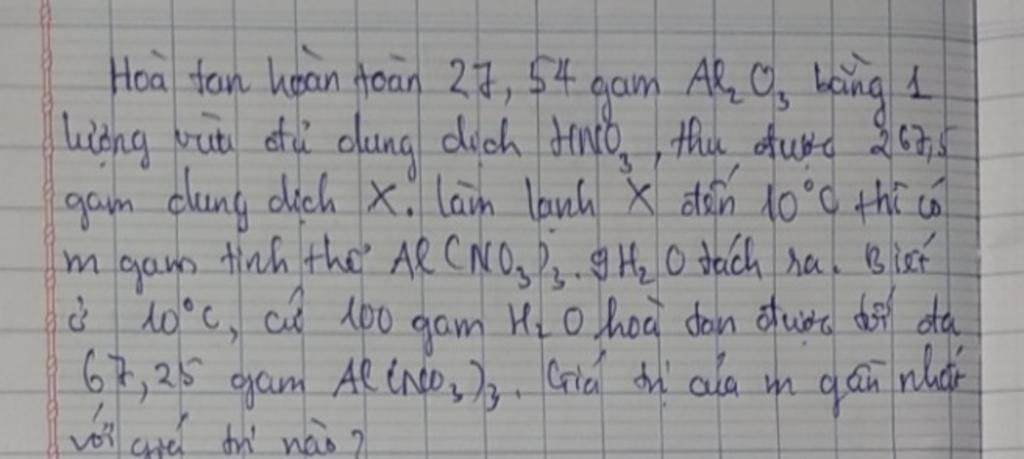 Hoà tan hoàn toàn 27,54 gam Al₂O₃ bằng 1
lượng vừa đủ dung dịch HNO₃, thu được 267,5
gam dung dịch X. làm lạnh X đến 10°C thì có
m gam tinh thể Al(NO₃)₃.9H₂O tách ra. Biết
ở 10°C, cứ 100 gam H₂O hoà tan được tối đa
67,25 gam Al(NO₃)₃. Giá trị của m gần nhất
với giá trị nào?